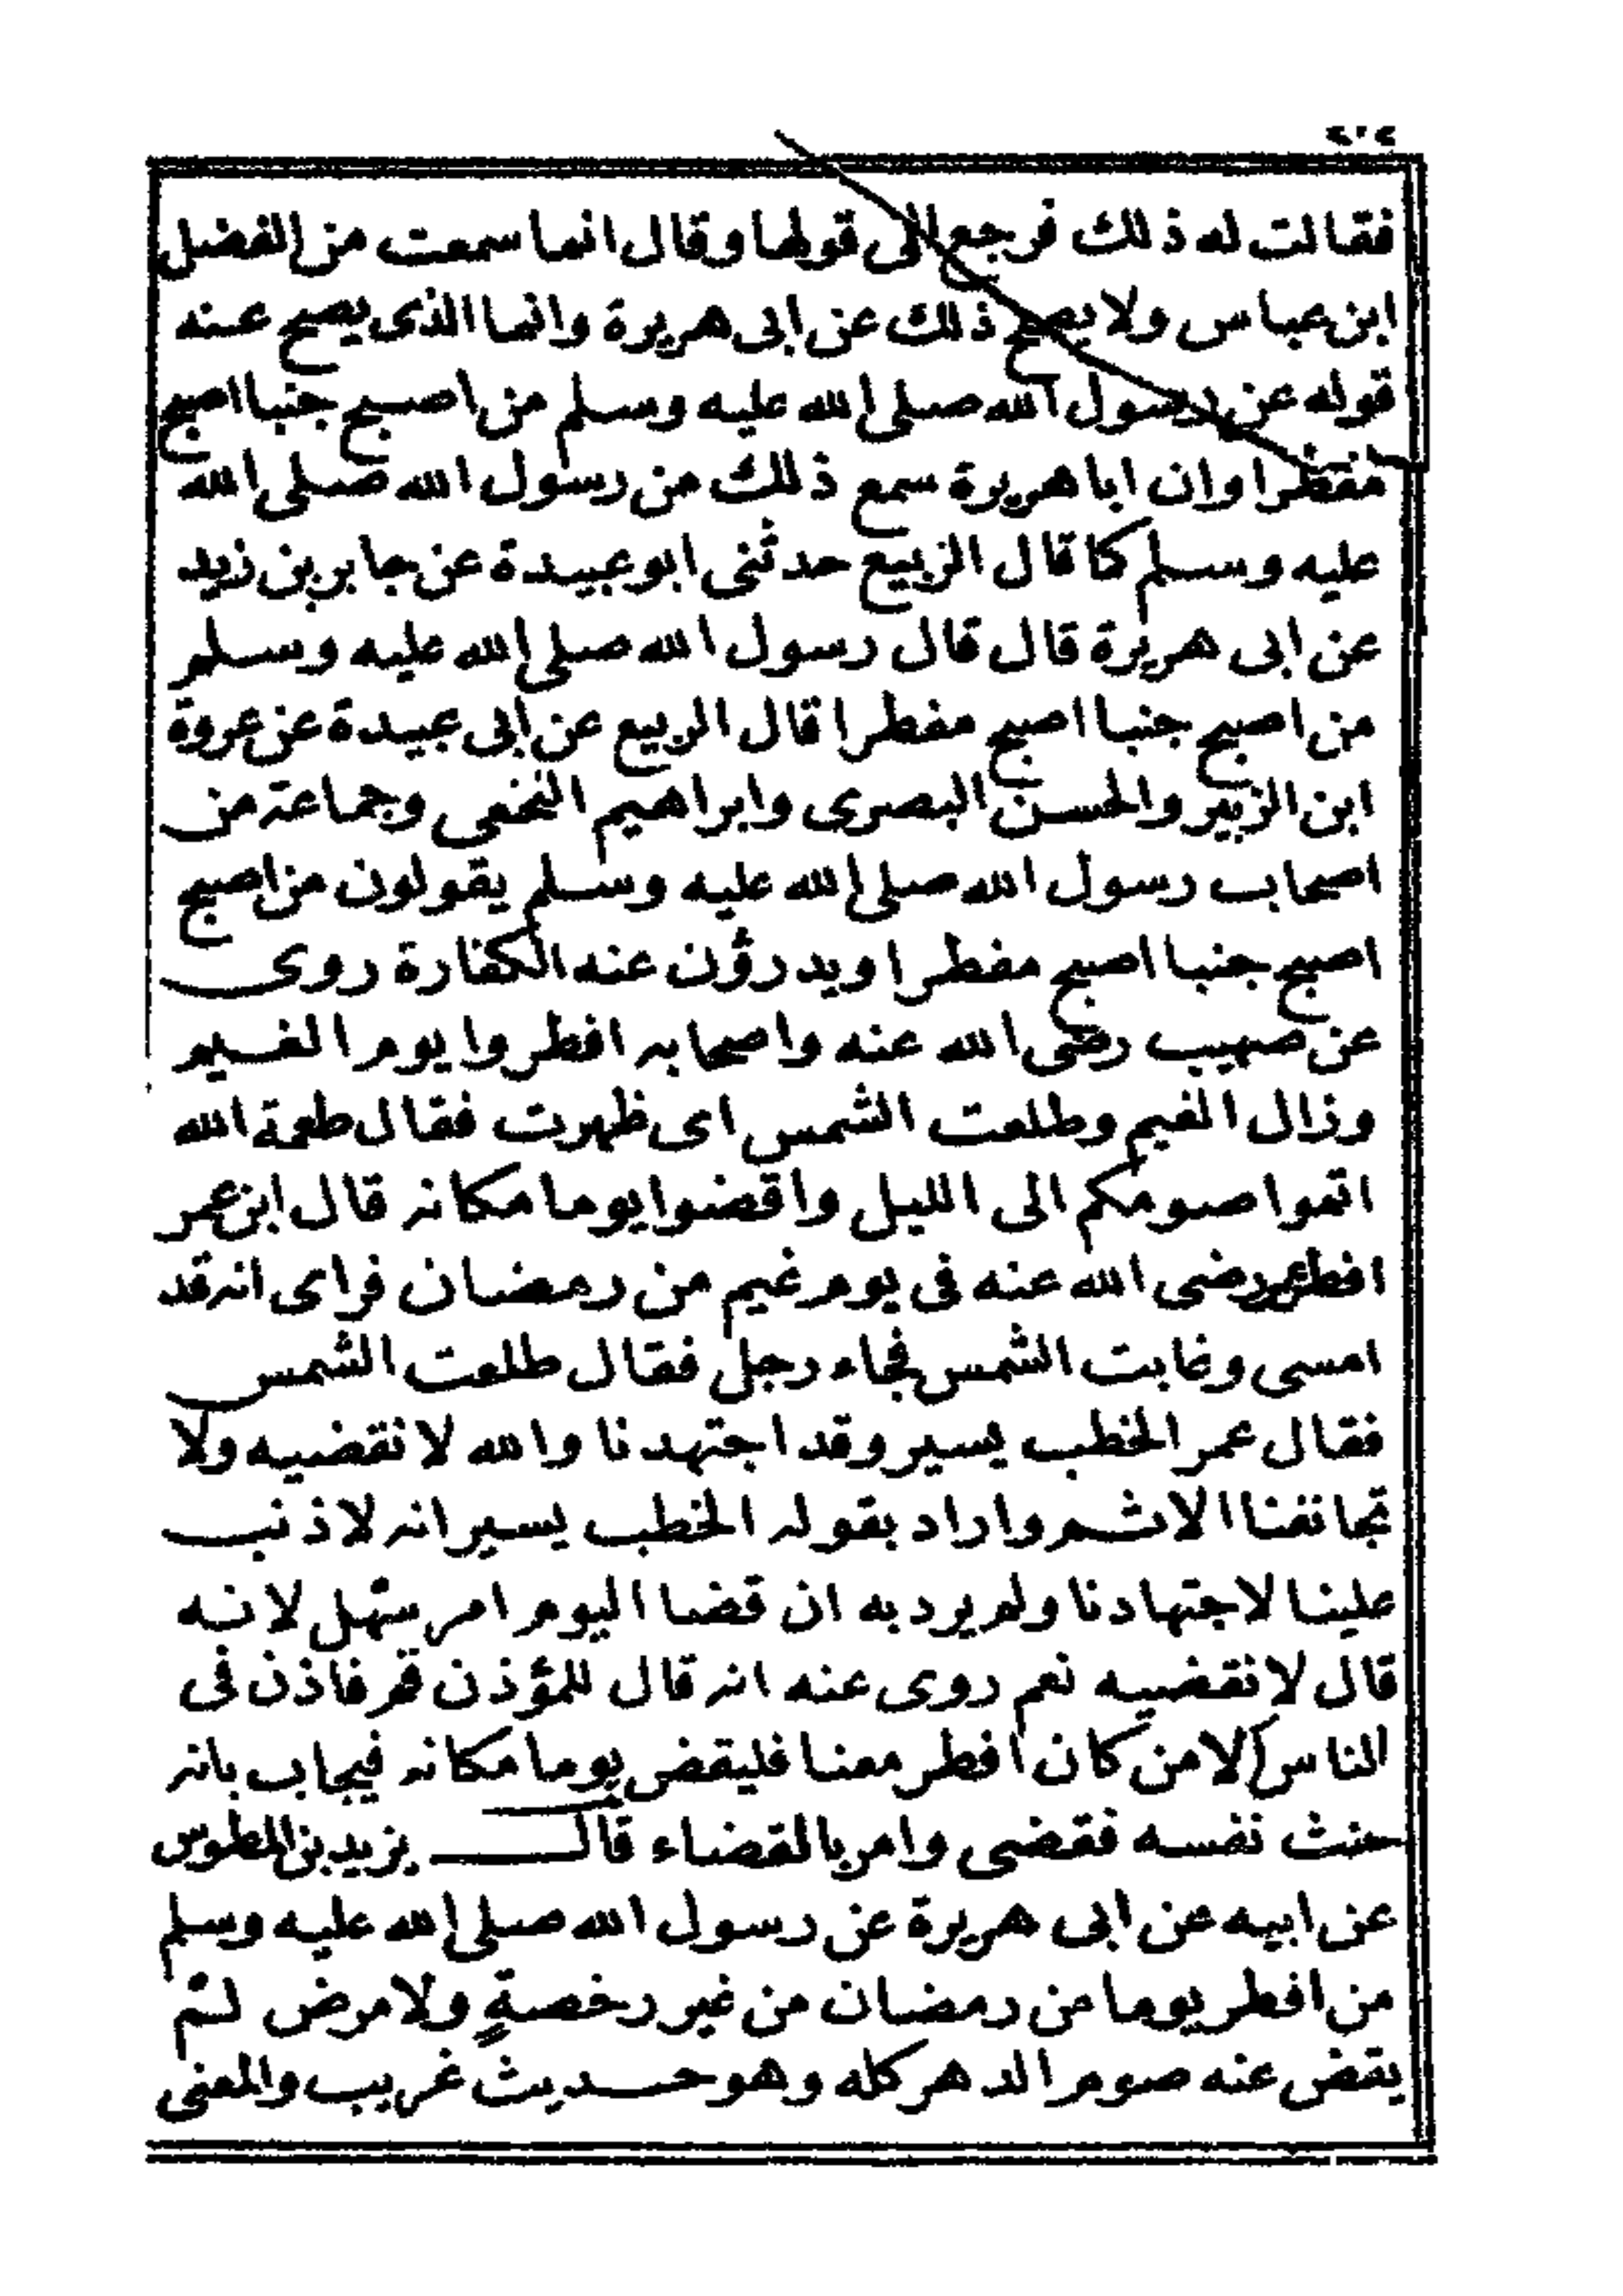 فقالت له ذلك فرجع الى قولها وقال انما سمعت من الفضل
ابن عباس ولا يصح ذلك عن ابى هريرة وانما الذى يصح عنه
قوله عن رسول الله صلى الله عليه وسلم من اصبح جنبا اصبح
مفطرا وان ابا هريرة سمع ذلك من رسول الله صلى الله
عليه وسلم كما قال الربيع حدثنى ابو عبيدة عن جابر بن زيد
عن ابى هريرة قال قال رسول الله صلى الله عليه وسلم
من اصبح جنبا اصبح مفطرا قال الربيع عن ابى عبيدة عن عروة
ابن الزبير والحسن البصرى وابراهيم النخعى وجماعة من
اصحاب رسول الله صلى الله عليه وسلم يقولون من اصبح
اصبح جنبا اصبح مفطرا ويدرؤن عنه الكفارة روى
عن صهيب رضى الله عنه واصحابه افطروا يوم الغيم
وزال الغيم وطلعت الشمس اى ظهرت فقال طعمة الله
اتموا صومكم الى الليل واقضوا يوما مكانه قال ابن عمر
افطر عمر رضى الله عنه فى يوم غيم من رمضان فراى انه قد
امسى وغابت الشمس فجاء رجل فقال طلعت الشمس
فقال عمر الخطب يسير وقد اجتهدنا والله لا نقضيه ولا
تجانفنا الاثم واراد بقوله الخطب يسير انه لا ذنب
علينا لاجتهادنا ولم يرد به ان قضا اليوم امر سهل لانه
قال لا نقضيه نعم روى عنه انه قال للمؤذن قم فاذن فى
الناس الا من كان افطر معنا فليقض يوما مكانه فيجاب بانه
حنث نفسه فقضى وامر بالقضاء قال يزيد بن المطوس
عن ابيه عن ابى هريرة عن رسول الله صلى الله عليه وسلم
من افطر يوما من رمضان من غير رخصةٍ ولا مرض لم
يقض عنه صوم الدهر كله وهو حديث غريب والمعنى